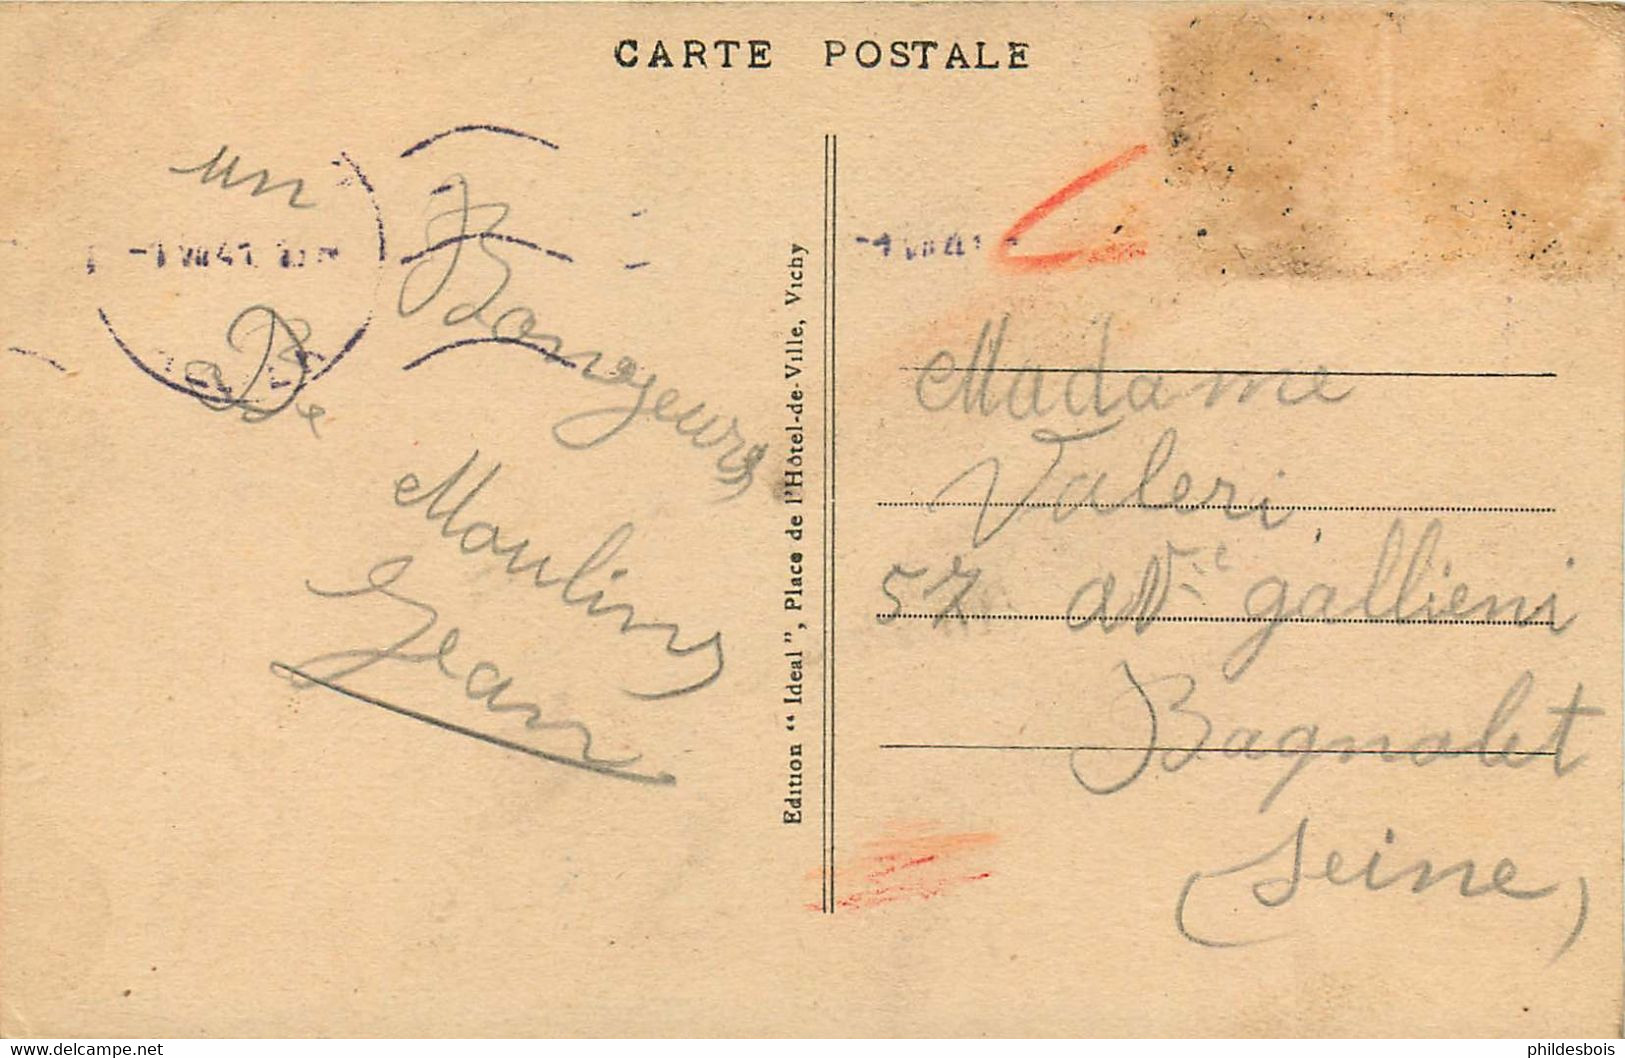 CARTE POSTALE
un
Bonjeurs
De
Moulins
Jean
-1 VII 41
-1 VII 41
Edition “ Ideal ”, Place de l'Hôtel-de-Ville, Vichy
Madame
Valeri
57 aVe gallieni
Bagnolet
(Seine)
www.delcampe.net
phildesbois